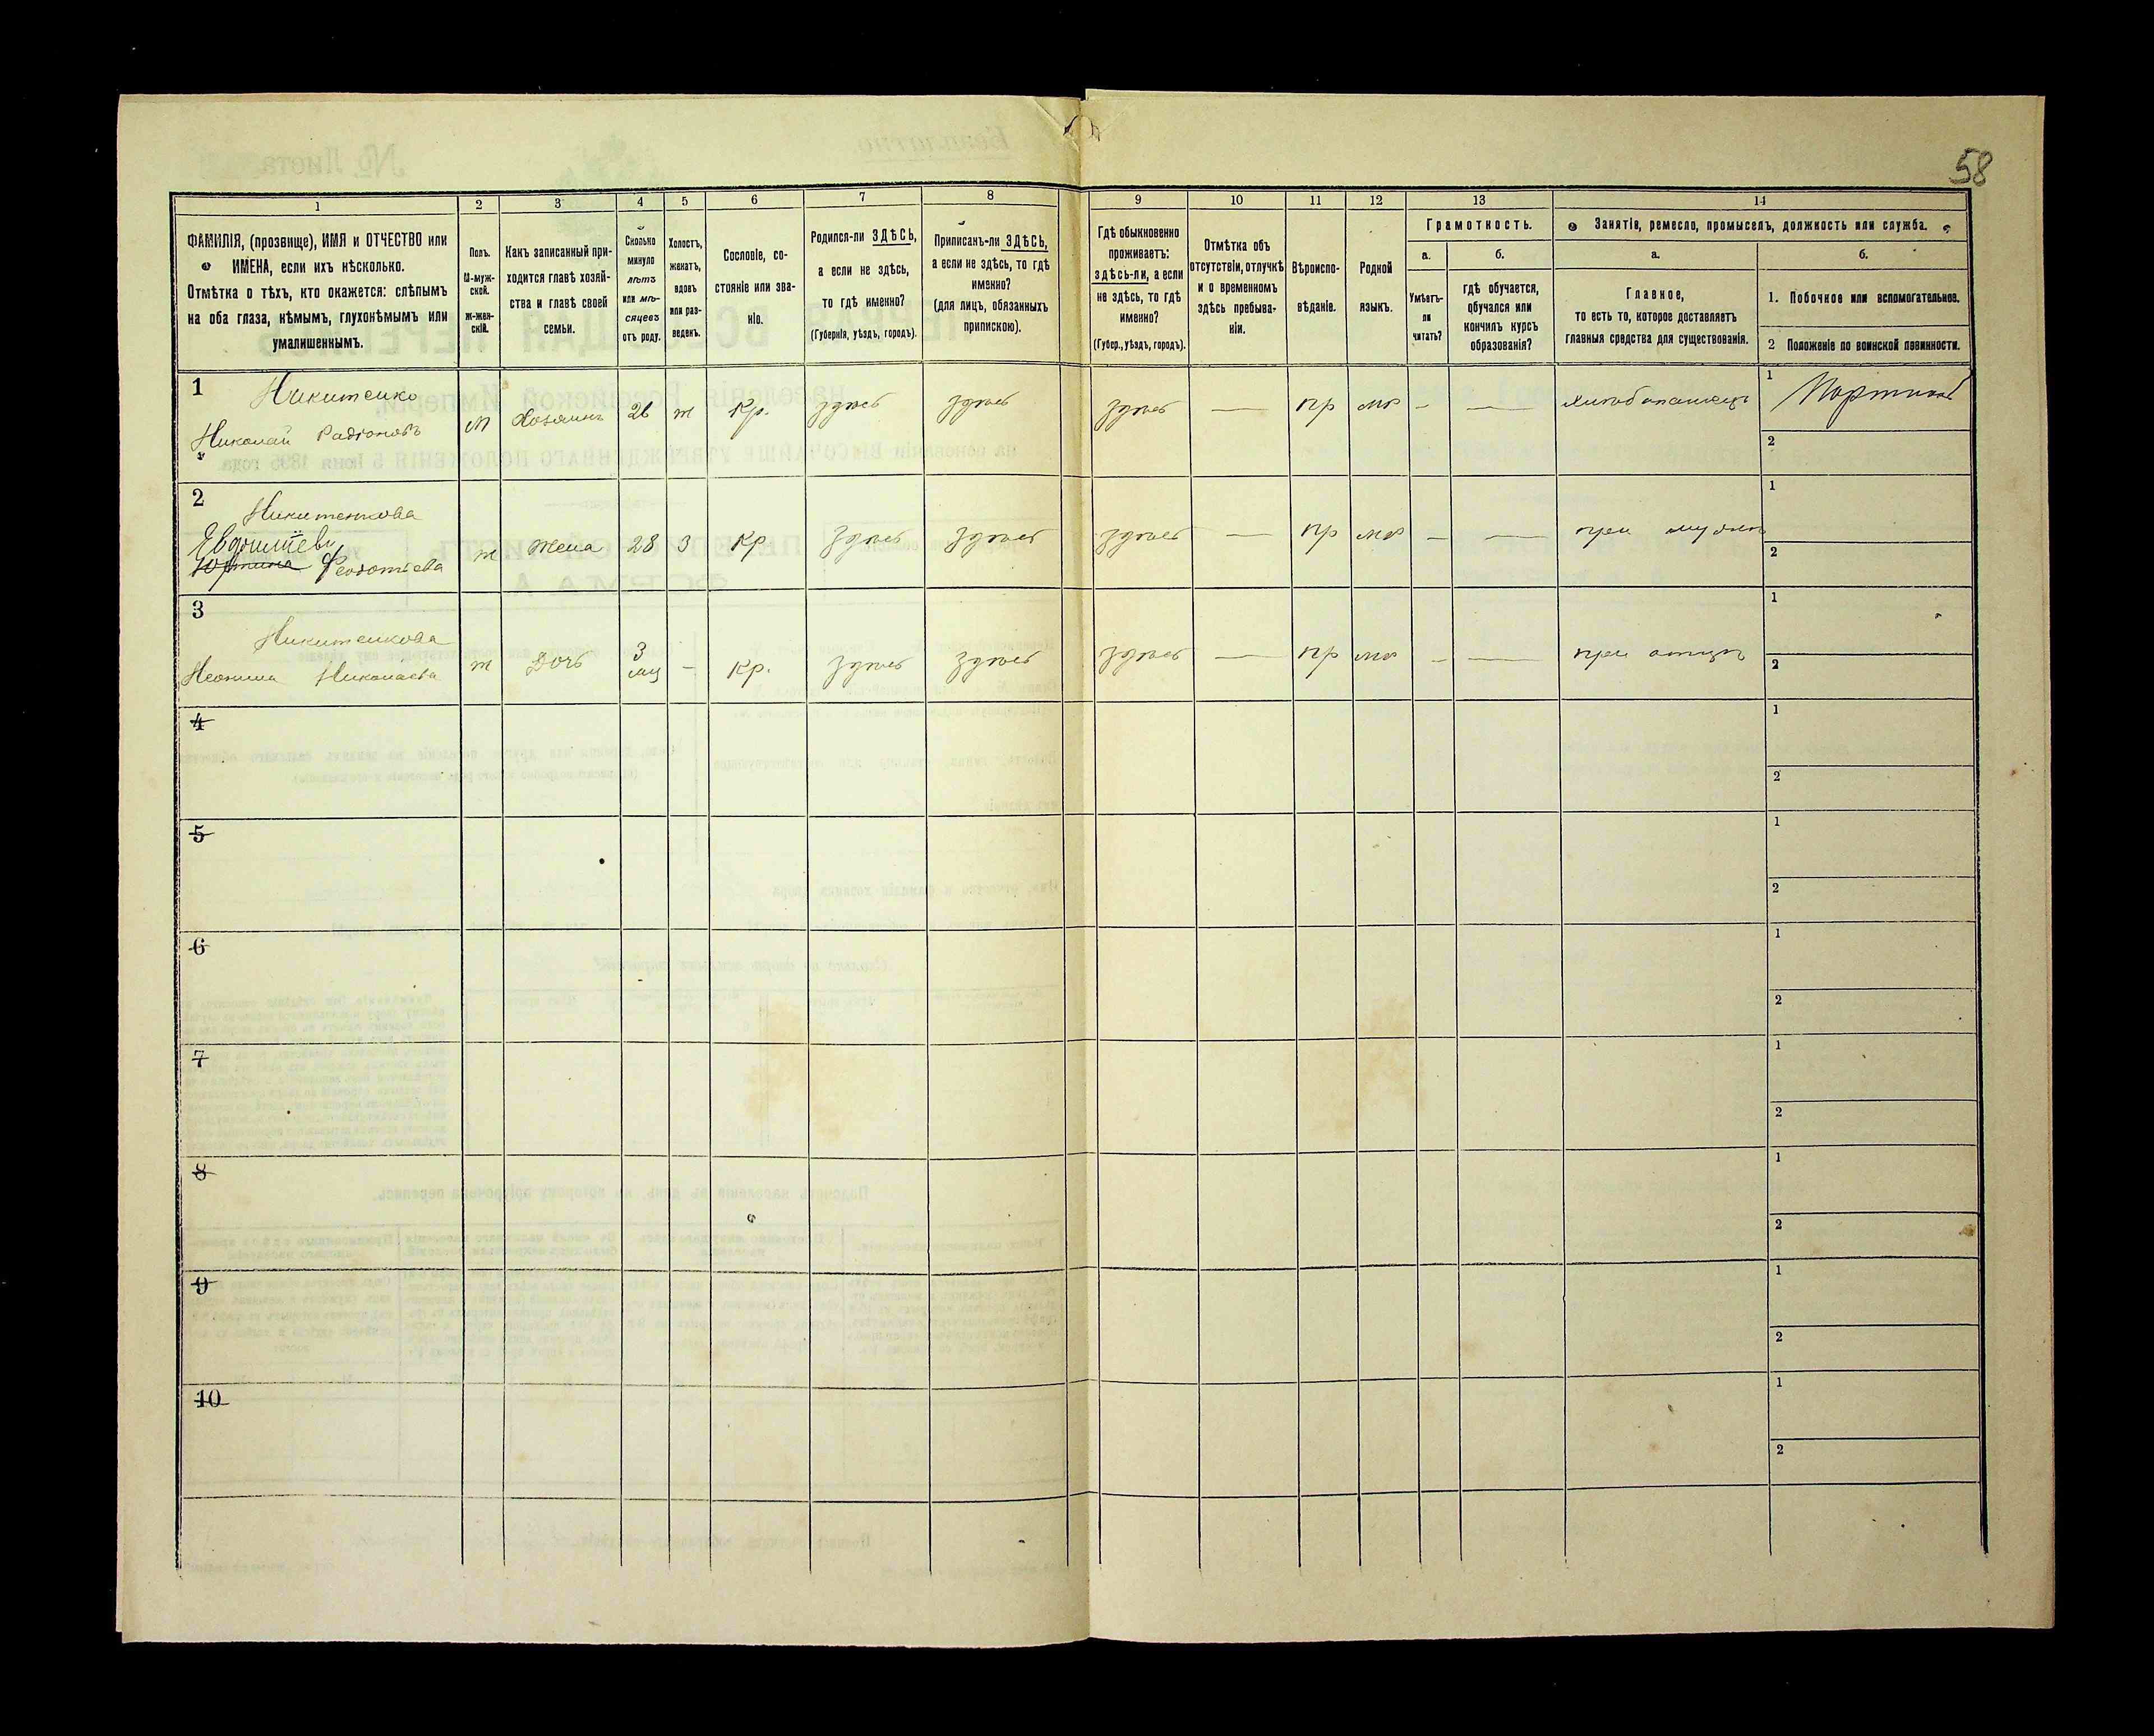 58
1
2
3
4
5
6
7
8
9
10
11
12
13
14
ФАМИЛІЯ, (прозвище), ИМЯ и ОТЧЕСТВО или
ИМЕНА, если ихъ нѣсколько.
Отмѣтка о тѣхъ, кто окажется: слѣпымъ
на оба глаза, нѣмымъ, глухонѣмымъ или
умалишеннымъ.
Полъ.
М-муж-
ской.
ж-жен-
скій.
Какъ записанный при-
ходится главѣ хозяй-
ства и главѣ своей
семьи.
Сколько
минуло
лѣтъ
или мѣ-
сяцевъ
отъ роду.
Холостъ,
женатъ,
вдовъ
или раз-
веденъ.
Сословіе, со-
стояніе или зва-
ніе.
Родился-ли ЗДѢСЬ,
а если не здѣсь,
то гдѣ именно?
(Губернія, уѣздъ, городъ).
Приписанъ-ли ЗДѢСЬ,
а если не здѣсь, то гдѣ
именно?
(для лицъ, обязанныхъ
припискою).
Гдѣ обыкновенно
проживаетъ:
здѣсь-ли, а если
не здѣсь, то гдѣ
именно?
(Губер., уѣздъ, городъ).
Отмѣтка объ
отсутствіи, отлучкѣ
и о временномъ
здѣсь пребыва-
ніи.
Вѣроиспо-
вѣданіе.
Родной
языкъ.
Грамотность.
а.
Умѣетъ-
ли
читать?
б.
гдѣ обучается,
обучался или
кончилъ курсъ
образованія?
Занятія, ремесло, промыселъ, должность или служба.
а.
Главное,
то есть то, которое доставляетъ
главныя средства для существованія.
б.
1. Побочное или вспомогательное.
2 Положеніе по воинской повинности.
1 Никитенко
Николай Радіоновъ
м Хозяинъ 26 ж Кр. здѣсь здѣсь здѣсь — пр мр - — хлѣбопашецъ
1
2
2 Никитенкова
Феодотьева
ж жена 28 З Кр здѣсь здѣсь здѣсь — пр мр - — при мужѣ
1
2
3 Никитенкова
Николаева
ж Дочь 3 мц - Кр. здѣсь здѣсь здѣсь — пр мр - — при отцѣ
1
2
4
1
2
5
1
2
6
1
2
7
1
2
8
1
2
9
1
2
10
1
2